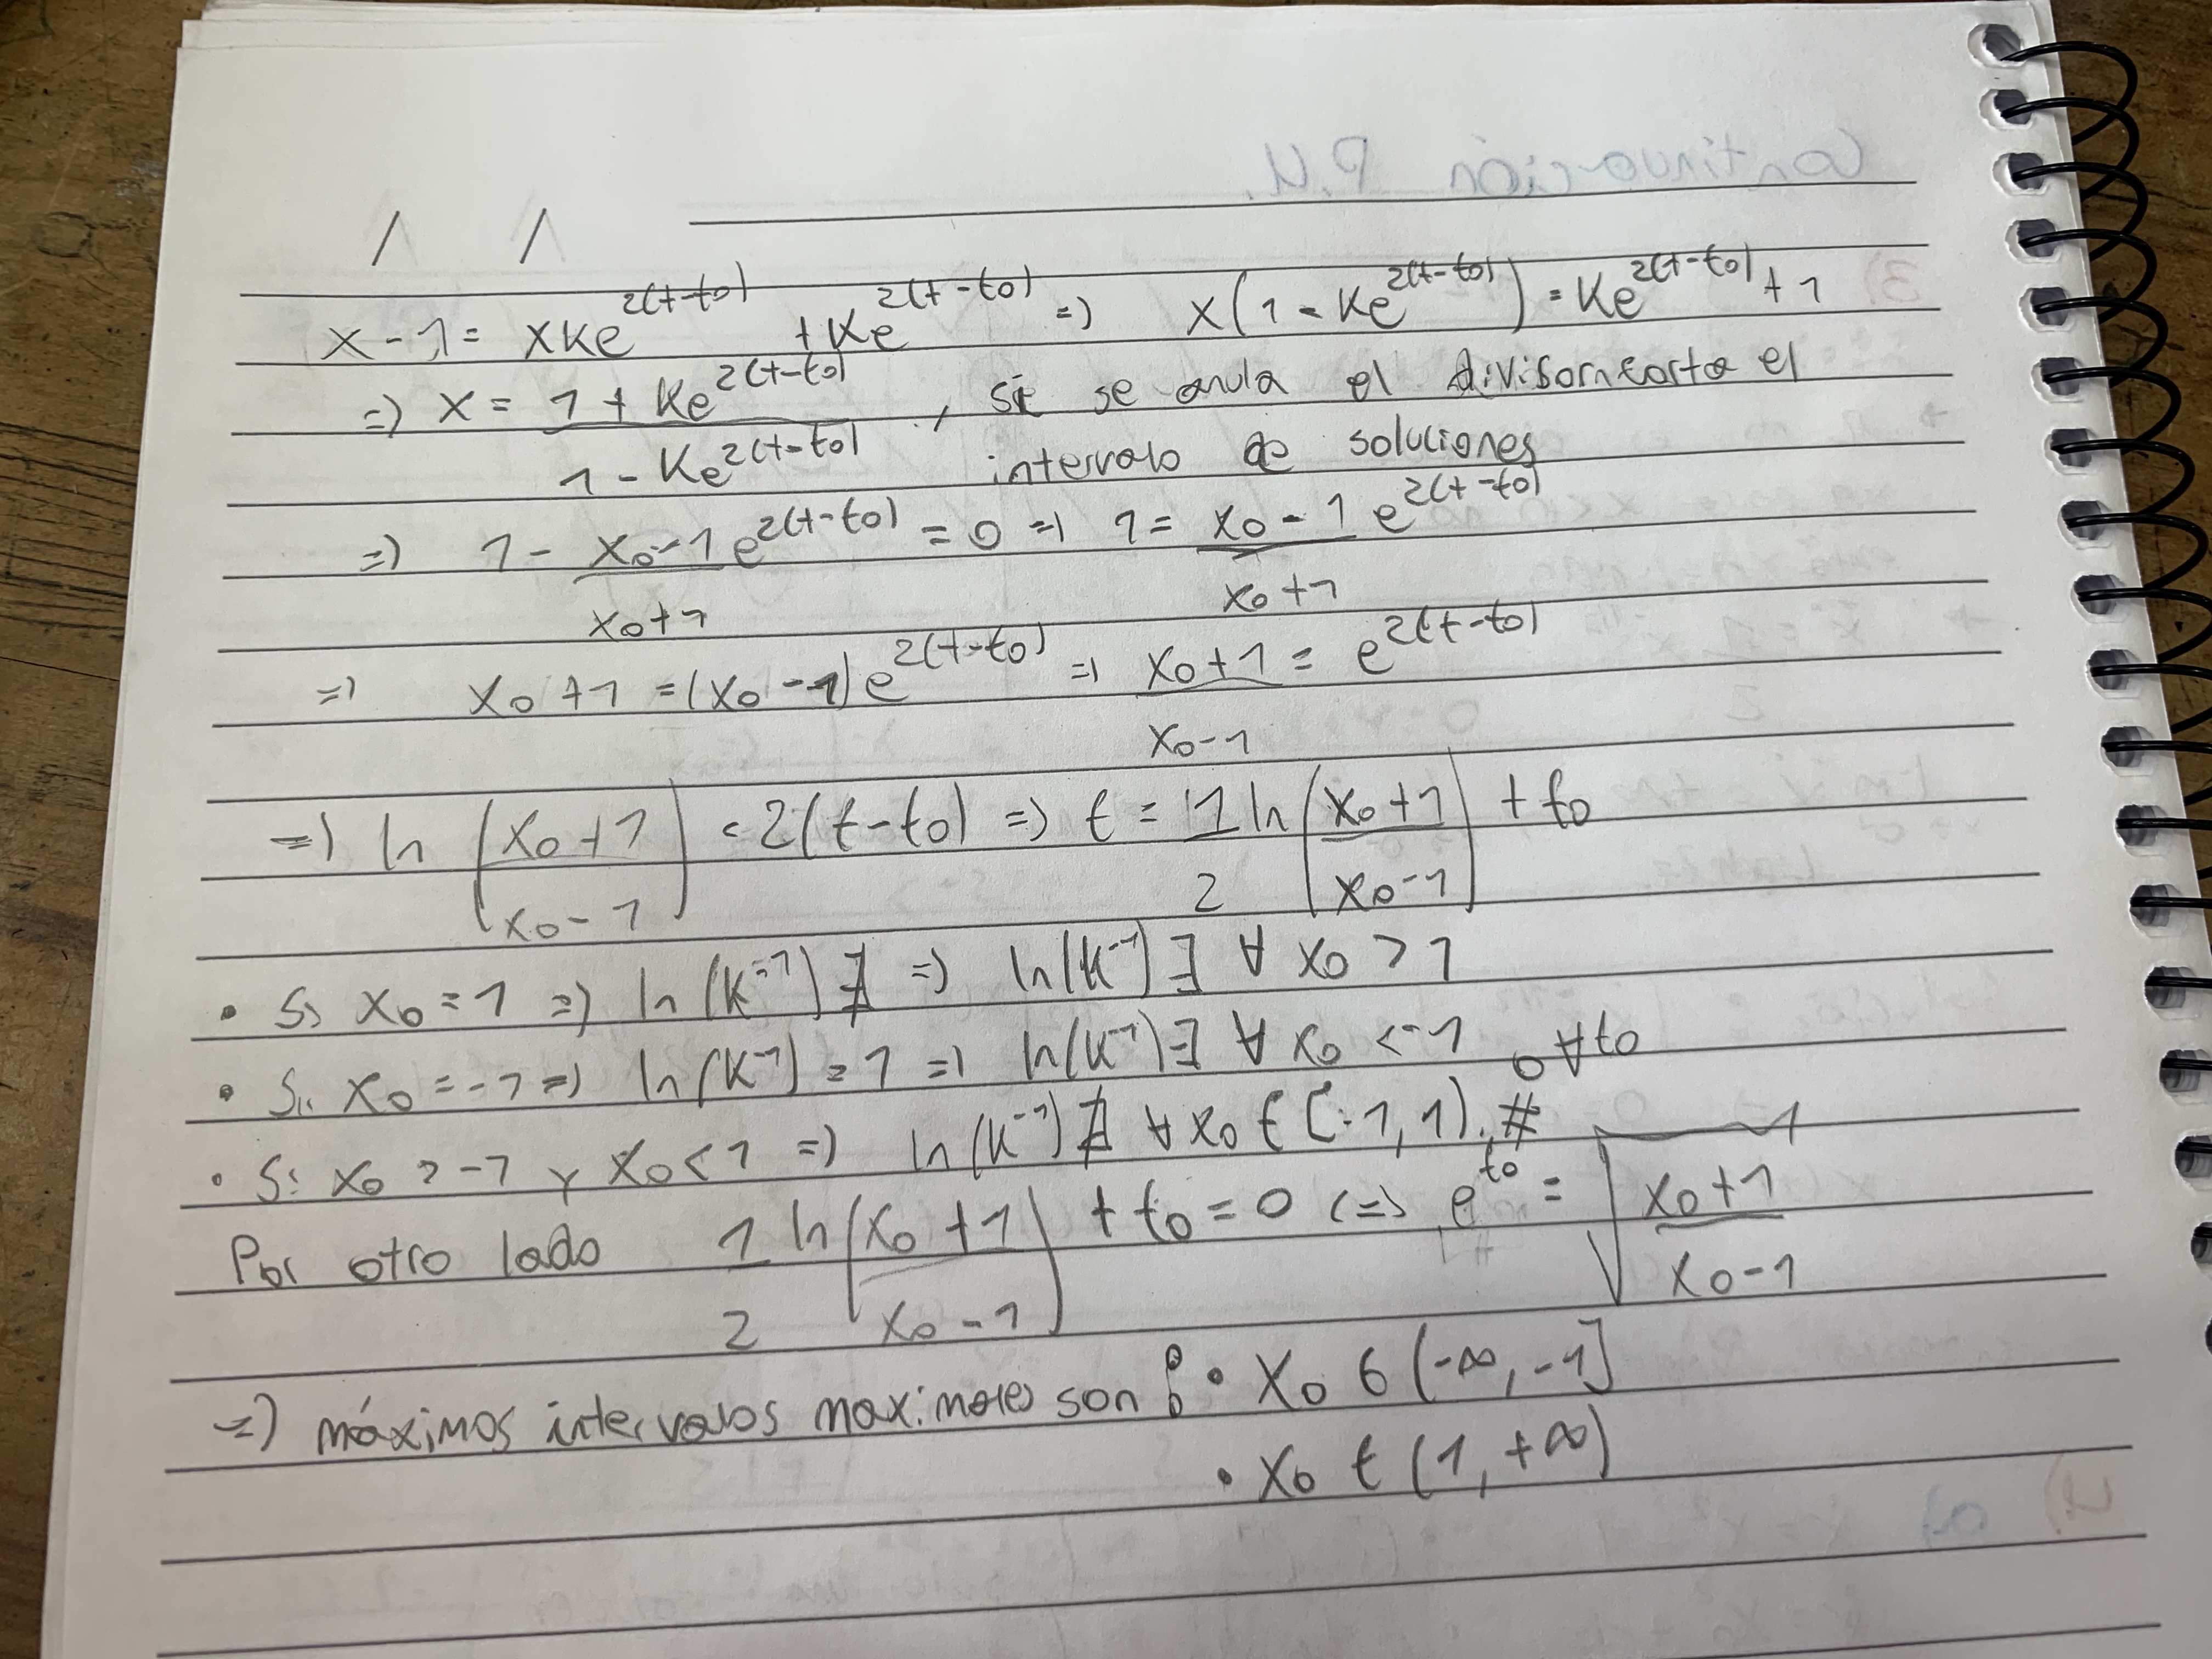 x-1 = xKe^{2(t-t0)} + Ke^{2(t-t0)} => x(1-Ke^{2(t-t0)}) = Ke^{2(t-t0)} + 1
=> x = \frac{1+Ke^{2(t-t0)}}{1-Ke^{2(t-t0)}}, si se anula el divisor corta el
intervalo de soluciones
=> 1 - \frac{x0-1}{x0+1} e^{2(t-t0)} = 0 => 1 = \frac{x0-1}{x0+1} e^{2(t-t0)}
=> x0+1 = (x0-1)e^{2(t-t0)} => \frac{x0+1}{x0-1} = e^{2(t-t0)}
=> ln(\frac{x0+1}{x0-1}) = 2(t-t0) => t = \frac{1}{2} ln(\frac{x0+1}{x0-1}) + t0
• Si x0 = 1 => ln(K^{-1}) ∄ => ln(K^{-1}) ∃ ∀ x0 > 1
• Si x0 = -1 => ln(K^{-1}) = 1 => ln(K^{-1}) ∃ ∀ x0 < -1, ∀t0
• Si x0 > -1 y x0 < 1 => ln(K^{-1}) ∄ ∀ x0 ∈ (-1, 1). #
Por otro lado \frac{1}{2} ln(\frac{x0+1}{x0-1}) + t0 = 0 <=> e^{t0} = \sqrt{\frac{x0+1}{x0-1}}^{-1}
=> máximos intervalos maximales son: • x0 ∈ (-∞, -1]
• x0 ∈ (1, +∞)